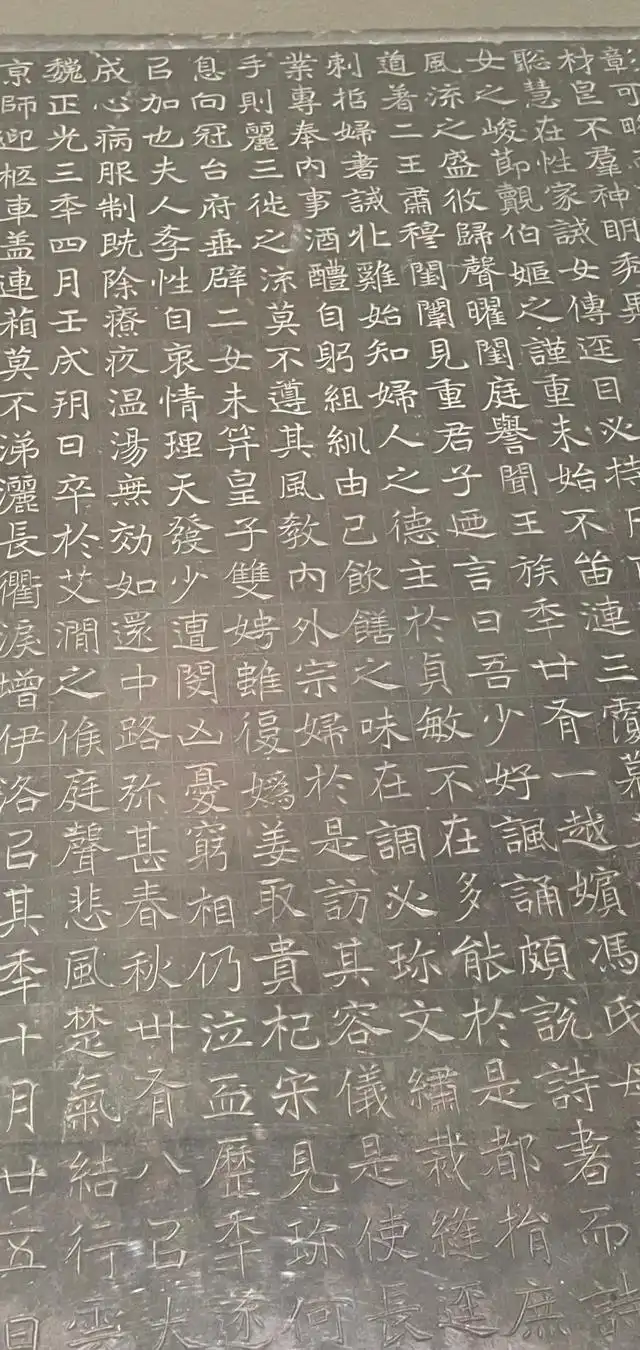 彰可
材皀不羣神明秀異
聡慧在性家誡女傳逕目必持
女之峻節覿伯姬之謹重未始不笛漣三覆慕
風流之盛攸歸聲曜閨庭譽聞王族秊廿有一越嬪馮氏
道著二王肅穆閨闈見重君子迺言曰吾少好諷誦頗說詩書而詩
刾婦書誡牝雞始知婦人之德主於貞敏不在多能於是都捐庶
業專奉內事酒醴自躬組紃由己飲饍之味在調必珎文繡裁縫逕
手則麗三徙之流莫不遵其風教內外宗婦於是訪其容儀是使長
息向冠台府垂辟二女未笄皇子雙娉雖復嬀姜取貴杞宋見珎何
㠯加也夫人孝性自衷情理天發少遭閔凶憂窮相仍泣血歷秊遂
成心病服制旣除療疢溫湯無効如還中路弥甚春秋卌有八㠯大
魏正光三秊四月壬戌朔日卒於艾澗之候庭聲悲風楚氣結行雲
京師迎柩車盖連葙莫不涕灑長衢淚增伊洛㠯其秊十月廿五日